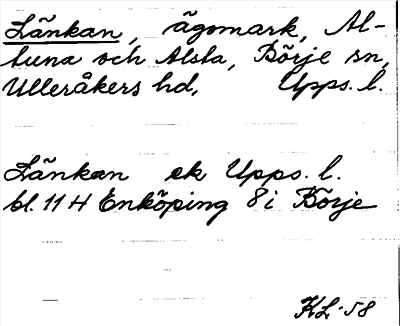 Länkan, ägomark, Al-
buna och Alsta, Börje sn,
Ulleråkers hd, Upps. l.
Länkan ek Upps. l.
bl. 11 H Enköping 8 i Börje
KL-58